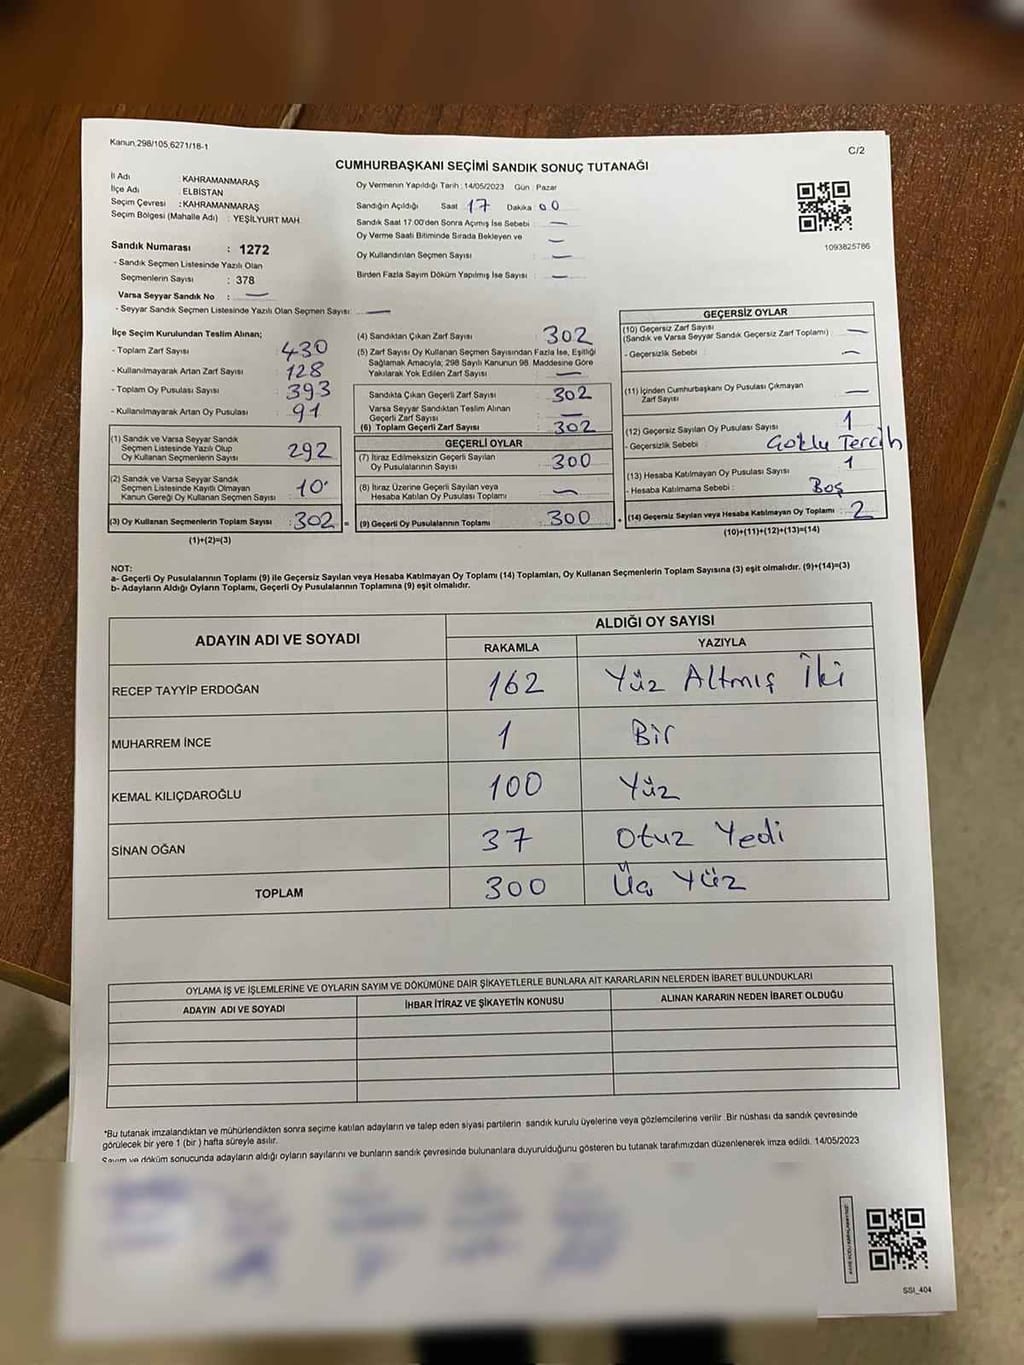 Kanun,298/105,6271/18-1
C/2
CUMHURBAŞKANI SEÇİMİ SANDIK SONUÇ TUTANAĞI
İl Adı : KAHRAMANMARAŞ
İlçe Adı : ELBİSTAN
Seçim Çevresi : KAHRAMANMARAŞ
Seçim Bölgesi (Mahalle Adı) : YEŞİLYURT MAH.
Oy Vermenin Yapıldığı Tarih : 14/05/2023 Gün : Pazar
Sandığın Açıldığı Saat 17 Dakika 00
Sandık Saat 17.00'den Sonra Açımış İse Sebebi : —
Oy Verme Saati Bitiminde Sırada Bekleyen ve —
Oy Kullandırılan Seçmen Sayısı : —
Birden Fazla Sayım Döküm Yapılmış İse Sayısı : —
1093825786
Sandık Numarası : 1272
- Sandık Seçmen Listesinde Yazılı Olan
Seçmenlerin Sayısı : 378
Varsa Seyyar Sandık No : —
- Seyyar Sandık Seçmen Listesinde Yazılı Olan Seçmen Sayısı : —
İlçe Seçim Kurulundan Teslim Alınan;
- Toplam Zarf Sayısı : 430
- Kullanılmayarak Artan Zarf Sayısı : 128
- Toplam Oy Pusulası Sayısı : 393
- Kullanılmayarak Artan Oy Pusulası : 91
(1) Sandık ve Varsa Seyyar Sandık
Seçmen Listesinde Yazılı Olup
Oy Kullanan Seçmenlerin Sayısı : 292
(2) Sandık ve Varsa Seyyar Sandık
Seçmen Listesinde Kayıtlı Olmayan
Kanun Gereği Oy Kullanan Seçmen Sayısı : 10
(3) Oy Kullanan Seçmenlerin Toplam Sayısı : 302 =
(1)+(2)=(3)
(4) Sandıktan Çıkan Zarf Sayısı : 302
(5) Zarf Sayısı Oy Kullanan Seçmen Sayısından Fazla İse, Eşitliği
Sağlamak Amacıyla; 298 Sayılı Kanunun 98. Maddesine Göre
Yakılarak Yok Edilen Zarf Sayısı : —
Sandıkta Çıkan Geçerli Zarf Sayısı : 302
Varsa Seyyar Sandıktan Teslim Alınan
Geçerli Zarf Sayısı : —
(6) Toplam Geçerli Zarf Sayısı : 302
GEÇERLİ OYLAR
(7) İtiraz Edilmeksizin Geçerli Sayılan
Oy Pusulalarının Sayısı : 300
(8) İtiraz Üzerine Geçerli Sayılan veya
Hesaba Katılan Oy Pusulası Toplamı : —
(9) Geçerli Oy Pusulalarının Toplamı : 300 +
GEÇERSİZ OYLAR
(10) Geçersiz Zarf Sayısı
(Sandık ve Varsa Seyyar Sandık Geçersiz Zarf Toplamı) : —
- Geçersizlik Sebebi : —
(11) İçinden Cumhurbaşkanı Oy Pusulası Çıkmayan
Zarf Sayısı : —
(12) Geçersiz Sayılan Oy Pusulası Sayısı : 1
- Geçersizlik Sebebi : Çoklu Tercih
(13) Hesaba Katılmayan Oy Pusulası Sayısı : 1
- Hesaba Katılmama Sebebi : Boş
(14) Geçersiz Sayılan veya Hesaba Katılmayan Oy Toplamı : 2
(10)+(11)+(12)+(13)=(14)
NOT:
a- Geçerli Oy Pusulalarının Toplamı (9) ile Geçersiz Sayılan veya Hesaba Katılmayan Oy Toplamı (14) Toplamları, Oy Kullanan Seçmenlerin Toplam Sayısına (3) eşit olmalıdır. (9)+(14)=(3)
b- Adayların Aldığı Oyların Toplamı, Geçerli Oy Pusulalarının Toplamına (9) eşit olmalıdır.
ADAYIN ADI VE SOYADI
ALDIĞI OY SAYISI
RAKAMLA YAZIYLA
RECEP TAYYİP ERDOĞAN 162 Yüz Altmış İki
MUHARREM İNCE 1 Bir
KEMAL KILIÇDAROĞLU 100 Yüz
SİNAN OĞAN 37 Otuz Yedi
TOPLAM 300 Üç Yüz
OYLAMA İŞ VE İŞLEMLERİNE VE OYLARIN SAYIM VE DÖKÜMÜNE DAİR ŞİKAYETLERLE BUNLARA AİT KARARLARIN NELERDEN İBARET BULUNDUKLARI
ADAYIN ADI VE SOYADI İHBAR İTİRAZ VE ŞİKAYETİN KONUSU ALINAN KARARIN NEDEN İBARET OLDUĞU
*Bu tutanak imzalandıktan ve mühürlendikten sonra seçime katılan adayların ve talep eden siyasi partilerin sandık kurulu üyelerine veya gözlemcilerine verilir .Bir nüshası da sandık çevresinde
görülecek bir yere 1 (bir ) hafta süreyle asılır.
Sayım ve döküm sonucunda adayların aldığı oyların sayılarını ve bunların sandık çevresinde bulunanlara duyurulduğunu gösteren bu tutanak tarafımızdan düzenlenerek imza edildi. 14/05/2023
SSI_404